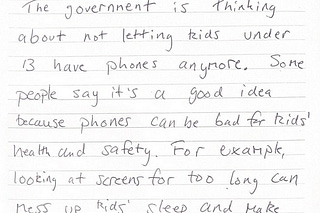 The government is thinking
about not letting kids under
13 have phones anymore. Some
people say it's a good idea
because phones can be bad for kids'
health and safety. For example,
looking at screens for too long can
mess up kids' sleep and make